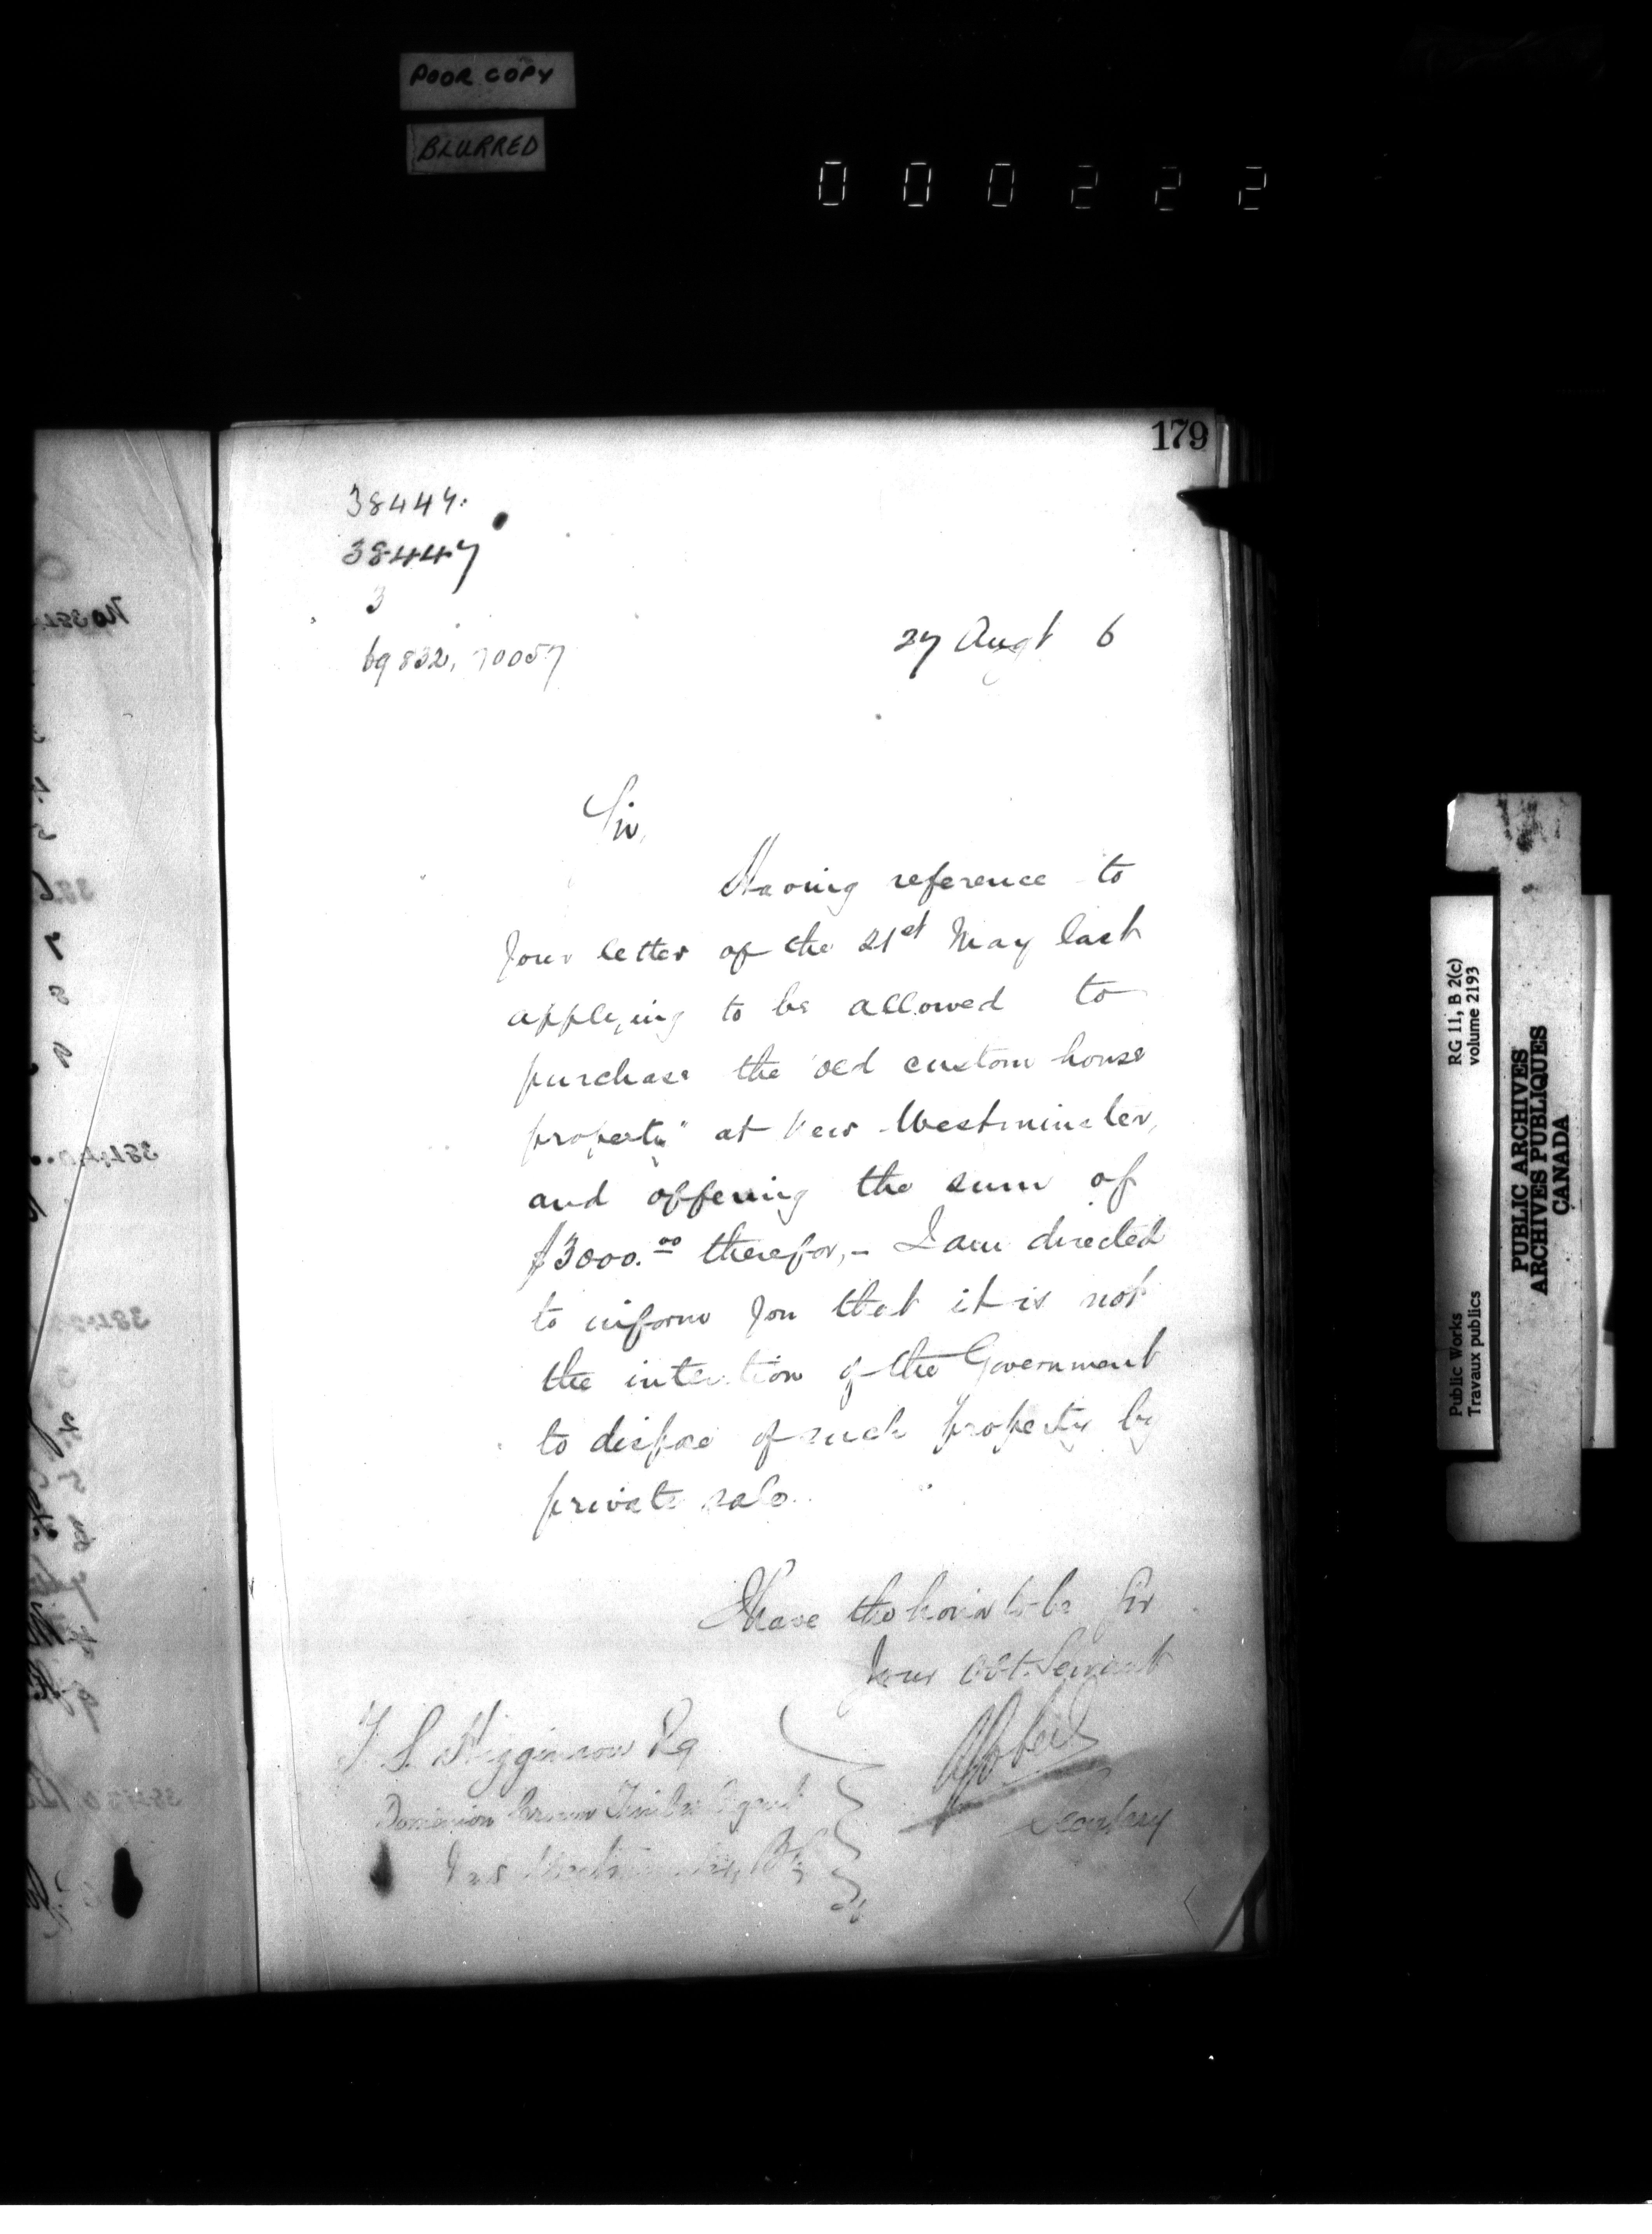 POOR COPY
BLURRED
000222
179
38447.
38447
3
69832, 70057
27 Augt 6
Sir,
Having reference to
your letter of the 21st May last
applying to be allowed to
purchase the "old custom house
property" at New Westminster,
and offering the sum of
$3000.00 therefor,- I am directed
to inform you that it is not
the intention of the Government
to dispose of such property by
private sale.
I have the honor to be Sir
Your Obt. Servant
AGobeil
Secretary
T. S. Higginson Esq
Dominion Crown Timber Agent
New Westminster, B.C.
RG 11, B 2(c)
volume 2193
Public Works
Travaux publics
PUBLIC ARCHIVES
ARCHIVES PUBLIQUES
CANADA